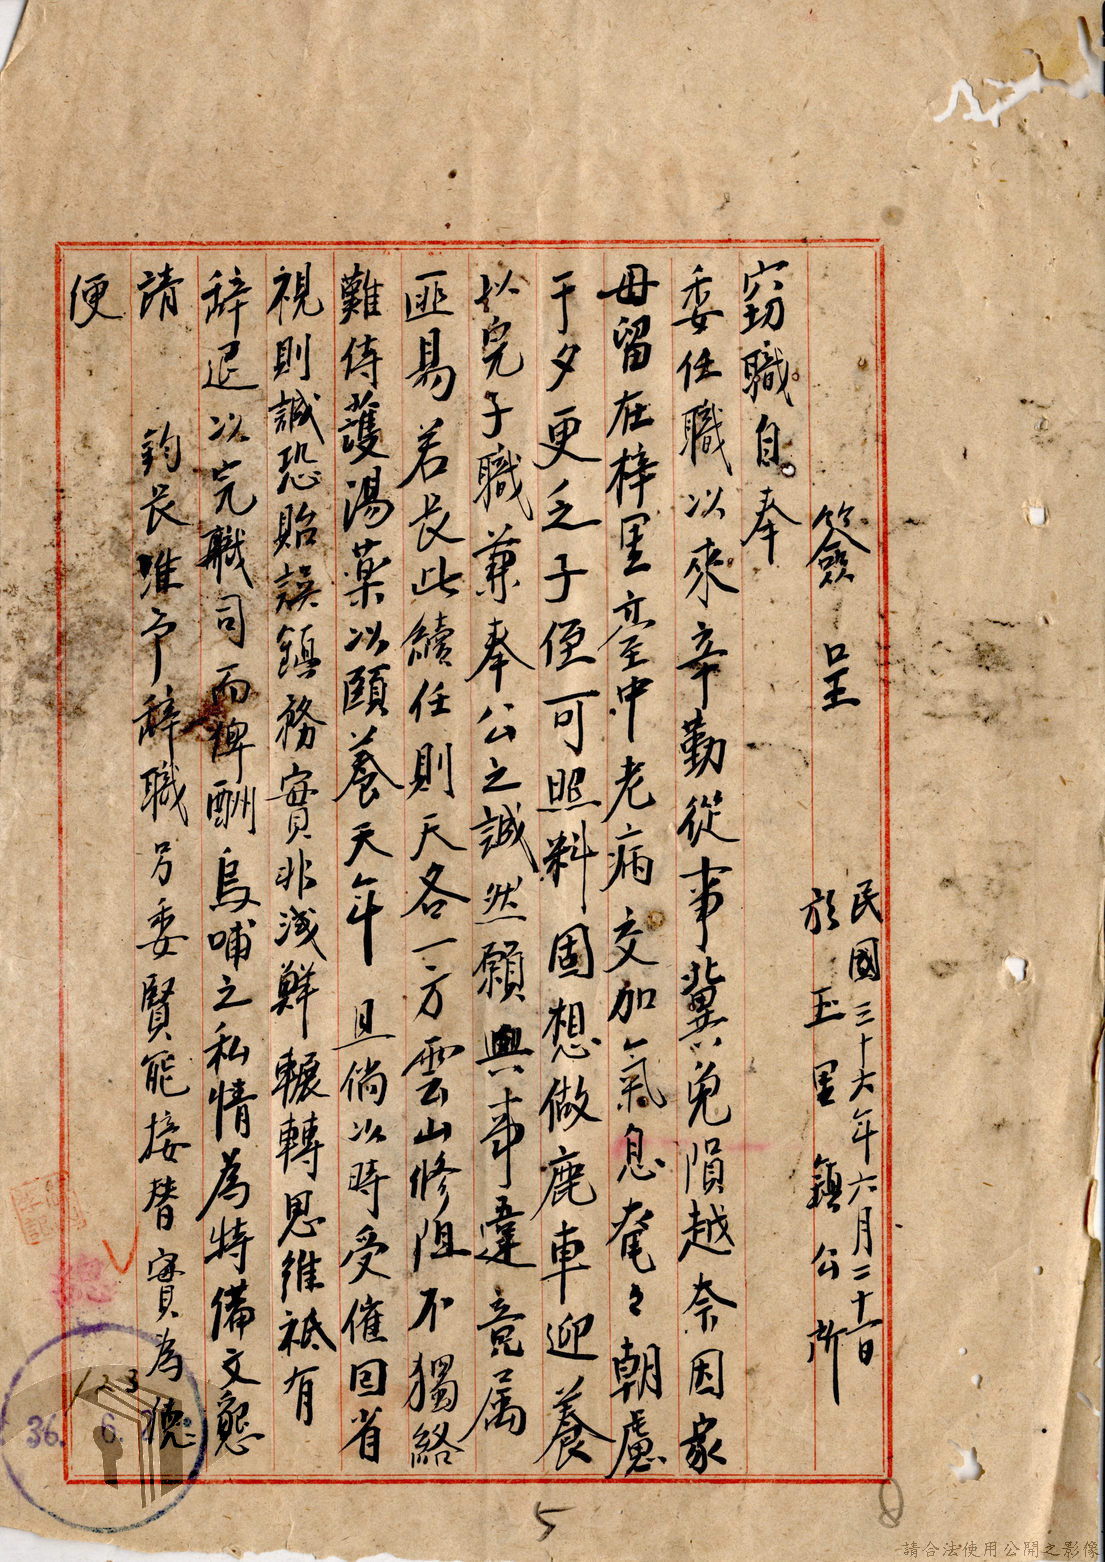 簽呈
民國三十六年六月二十一日
於玉里鎮公所
竊職自奉
委任職以來辛勤從事冀免隕越奈因家
母留在梓里臺中老病交加氣息奄々朝慮
于夕更乏子侄可照料固想做鹿車迎養
以完子職兼奉公之誠然願與事違竟属
匪易若長此續任則天各一方雲山修阻不獨
難侍護湯藥以頤養天年且倘以時受催回省
視則誠恐貽誤鎮務實非淺鮮輾轉思維祗有
辭退以完職司而俾酬烏哺之私情為特備文懇
請 鈞長准予辭職另委賢能接替實為德
便
123
36. 6.
5
請合法使用公開之影像